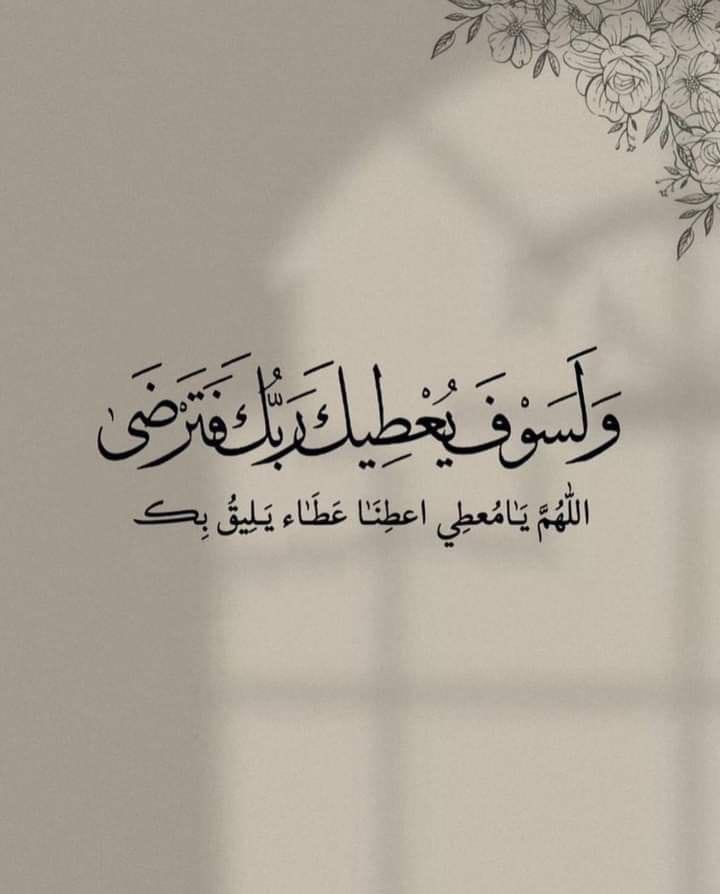 وَلَسَوْفَ يُعْطِيكَ رَبُّكَ فَتَرْضَىٰ
اللّٰهُمَّ يَامُعطِي اعطِنَا عَطَاء يَلِيقُ بِك